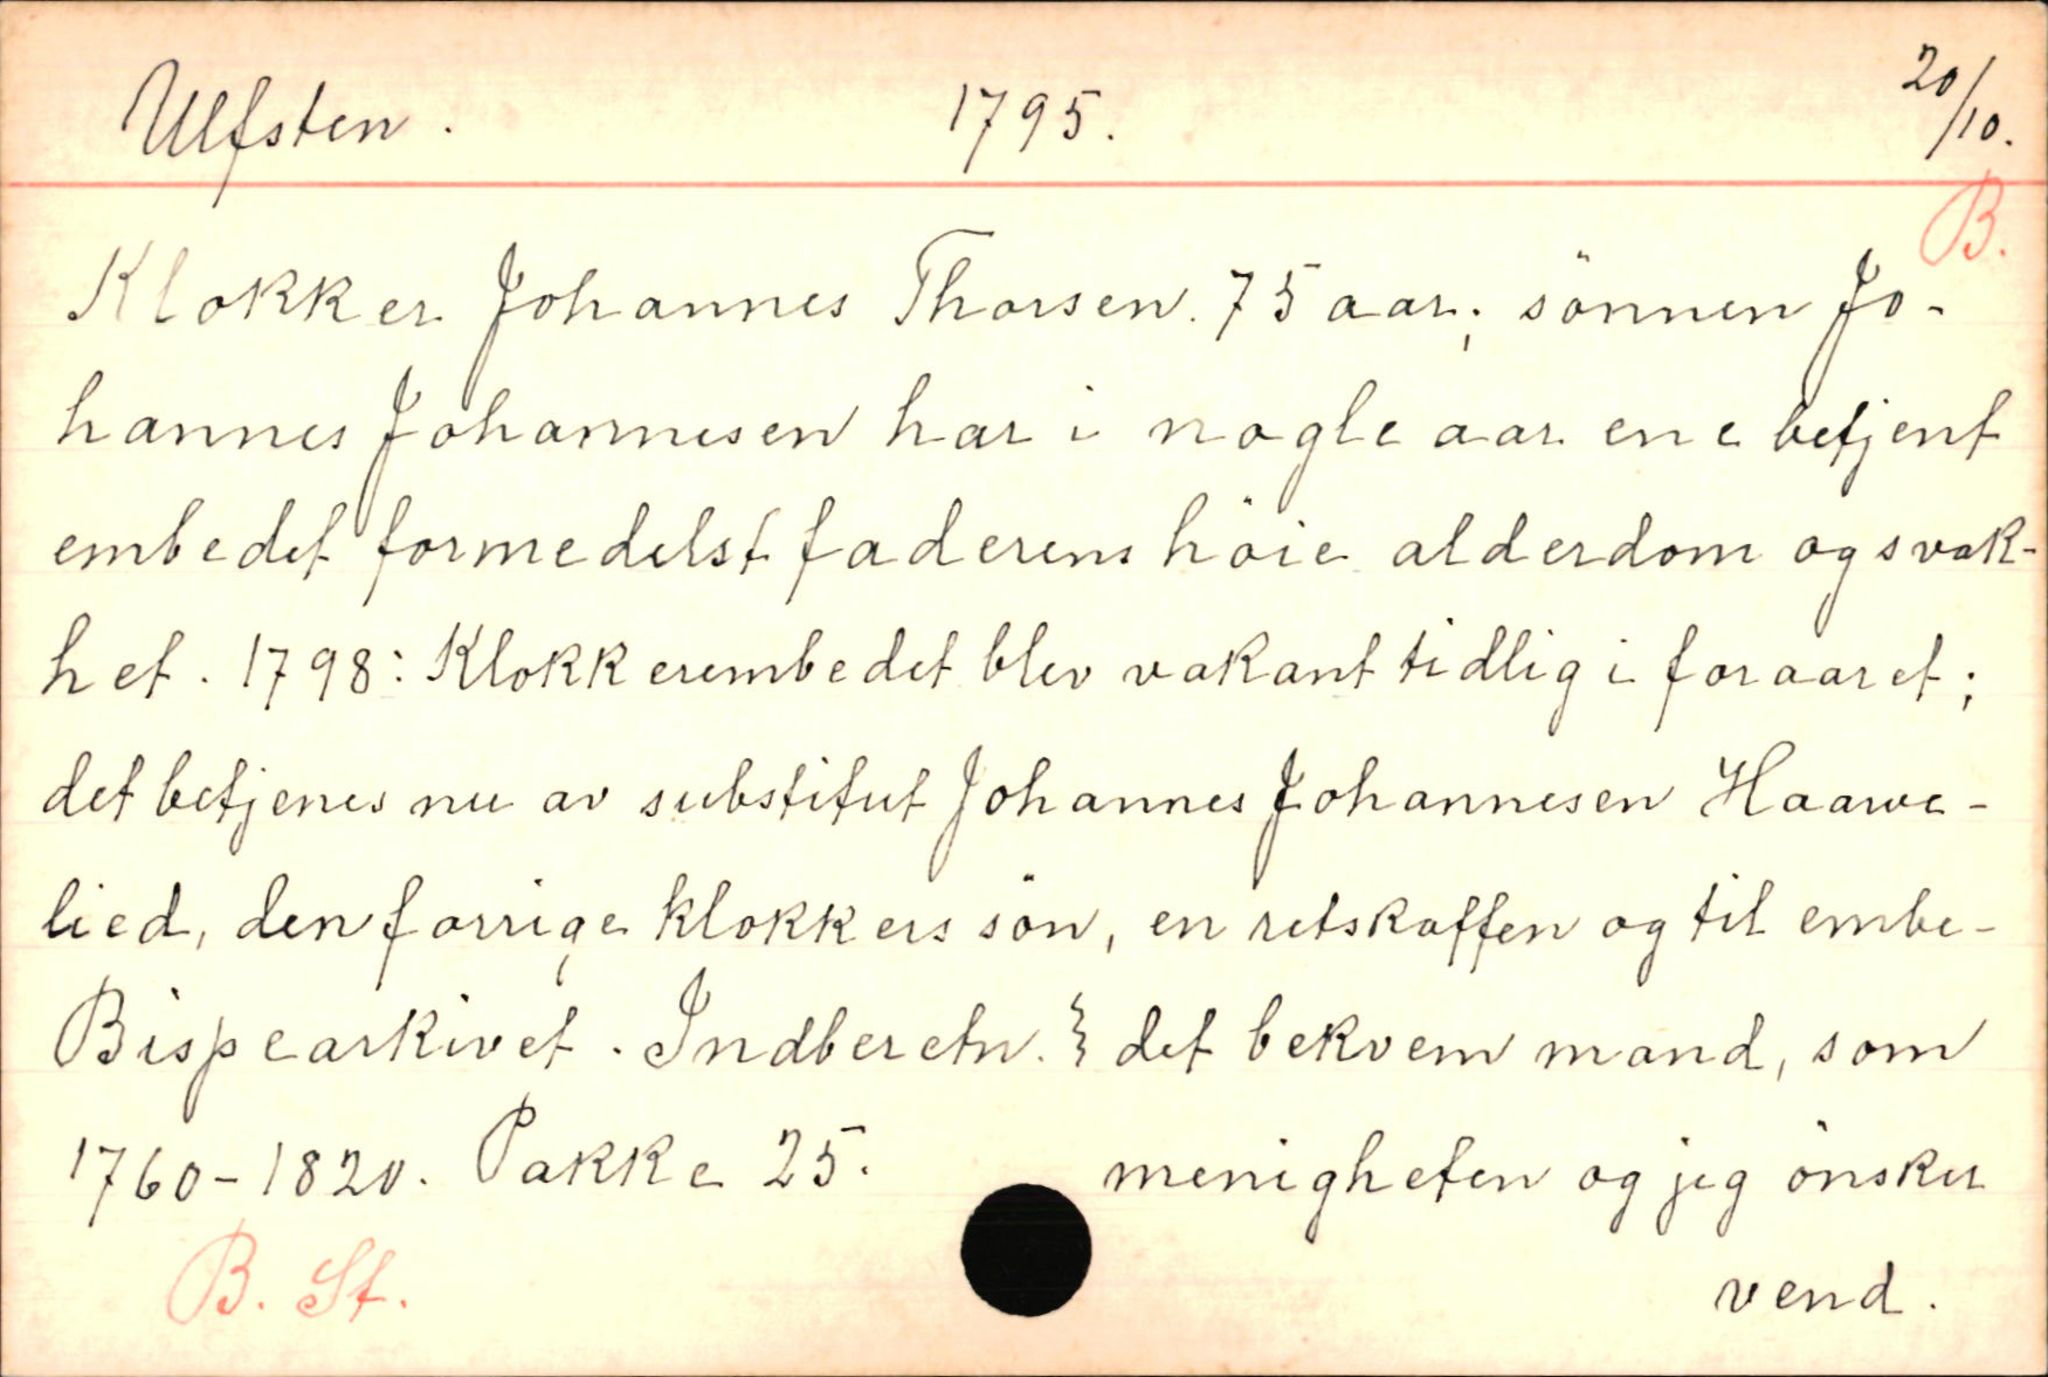 Ulfsten. 1795. 20/10.
B.
Klokker Johannes Thorsen. 75 aar; sönnen Jo-
hannes Johannesen har i nogle aar ene betjent
embedet formedelst faderens höie alderdom og svak-
het. 1798: Klokkerembedet blev vakant tidlig i foraaret;
det betjenes nu av substitut Johannes Johannesen Haawe-
lied, den forrige klokkers sön, en retskaffen og til embe-
det bekvem mand, som
menigheten og jeg önsker
vend.
Bispearkivet. Indberetn.
1760-1820. Pakke 25.
B. St.